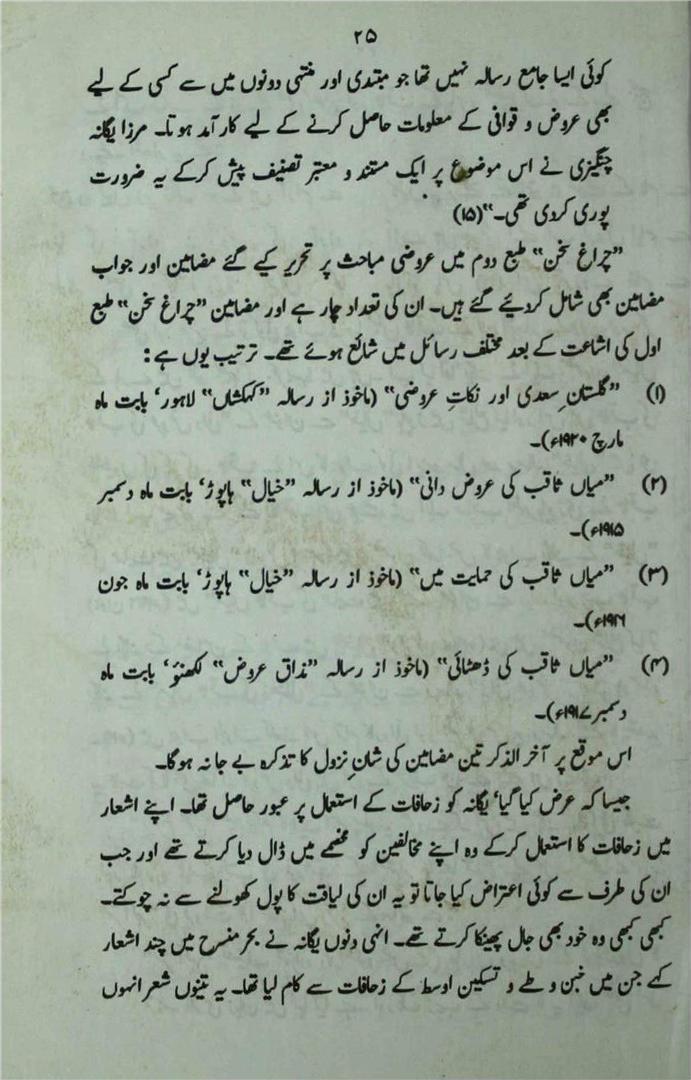 ۲۵
کوئی ایسا جامع رسالہ نہیں تھا جو مبتدی اور منتہی دونوں میں سے کسی کے لیے
بھی عروض و قوافی کے معلومات حاصل کرنے کے لیے کار آمد ہوتا۔ مرزا یگانہ
چنگیزی نے اس موضوع پر ایک مستند و معتبر تصنیف پیش کرکے یہ ضرورت
پوری کردی تھی۔“(۱۵)
”چراغ سخن“ طبع دوم میں عروضی مباحث پر تحریر کیے گئے مضامین اور جواب
مضامین بھی شامل کردیئے گئے ہیں۔ ان کی تعداد چار ہے اور مضامین ”چراغ سخن“ طبع
اول کی اشاعت کے بعد مختلف رسائل میں شائع ہوئے تھے۔ ترتیب یوں ہے:
(۱) ”گلستانِ سعدی اور نکاتِ عروضی“ (ماخوذ از رسالہ ”کہکشاں“ لاہور‘ بابت ماہ
مارچ ۱۹۲۰ء)۔
(۲) ”میاں ثاقب کی عروض دانی“ (ماخوذ از رسالہ ”خیال“ ہاپوڑ‘ بابت ماہ دسمبر
۱۹۱۵ء)۔
(۳) ”میاں ثاقب کی حمایت میں“ (ماخوذ از رسالہ ”خیال“ ہاپوڑ‘ بابت ماہ جون
۱۹۲۶ء)۔
(۴) ”میاں ثاقب کی ڈھٹائی“ (ماخوذ از رسالہ ”مذاق عروض“ لکھنؤ‘ بابت ماہ
دسمبر ۱۹۱۷ء)۔
اس موقع پر آخر الذکر تین مضامین کی شانِ نزول کا تذکرہ بے جا نہ ہوگا۔
جیسا کہ عرض کیا گیا‘ یگانہ کو زحافات کے استعمال پر عبور حاصل تھا۔ اپنے اشعار
میں زحافات کا استعمال کرکے وہ اپنے مخالفین کو مخمصے میں ڈال دیا کرتے تھے اور جب
ان کی طرف سے کوئی اعتراض کیا جاتا تو یہ ان کی لیاقت کا پول کھولنے سے نہ چوکتے۔
کبھی کبھی وہ خود بھی جال پھینکا کرتے تھے۔ انہی دنوں یگانہ نے بحر منسرح میں چند اشعار
کہے جن میں خبن و طے و تسکین اوسط کے زحافات سے کام لیا تھا۔ یہ تینوں شعر انہوں